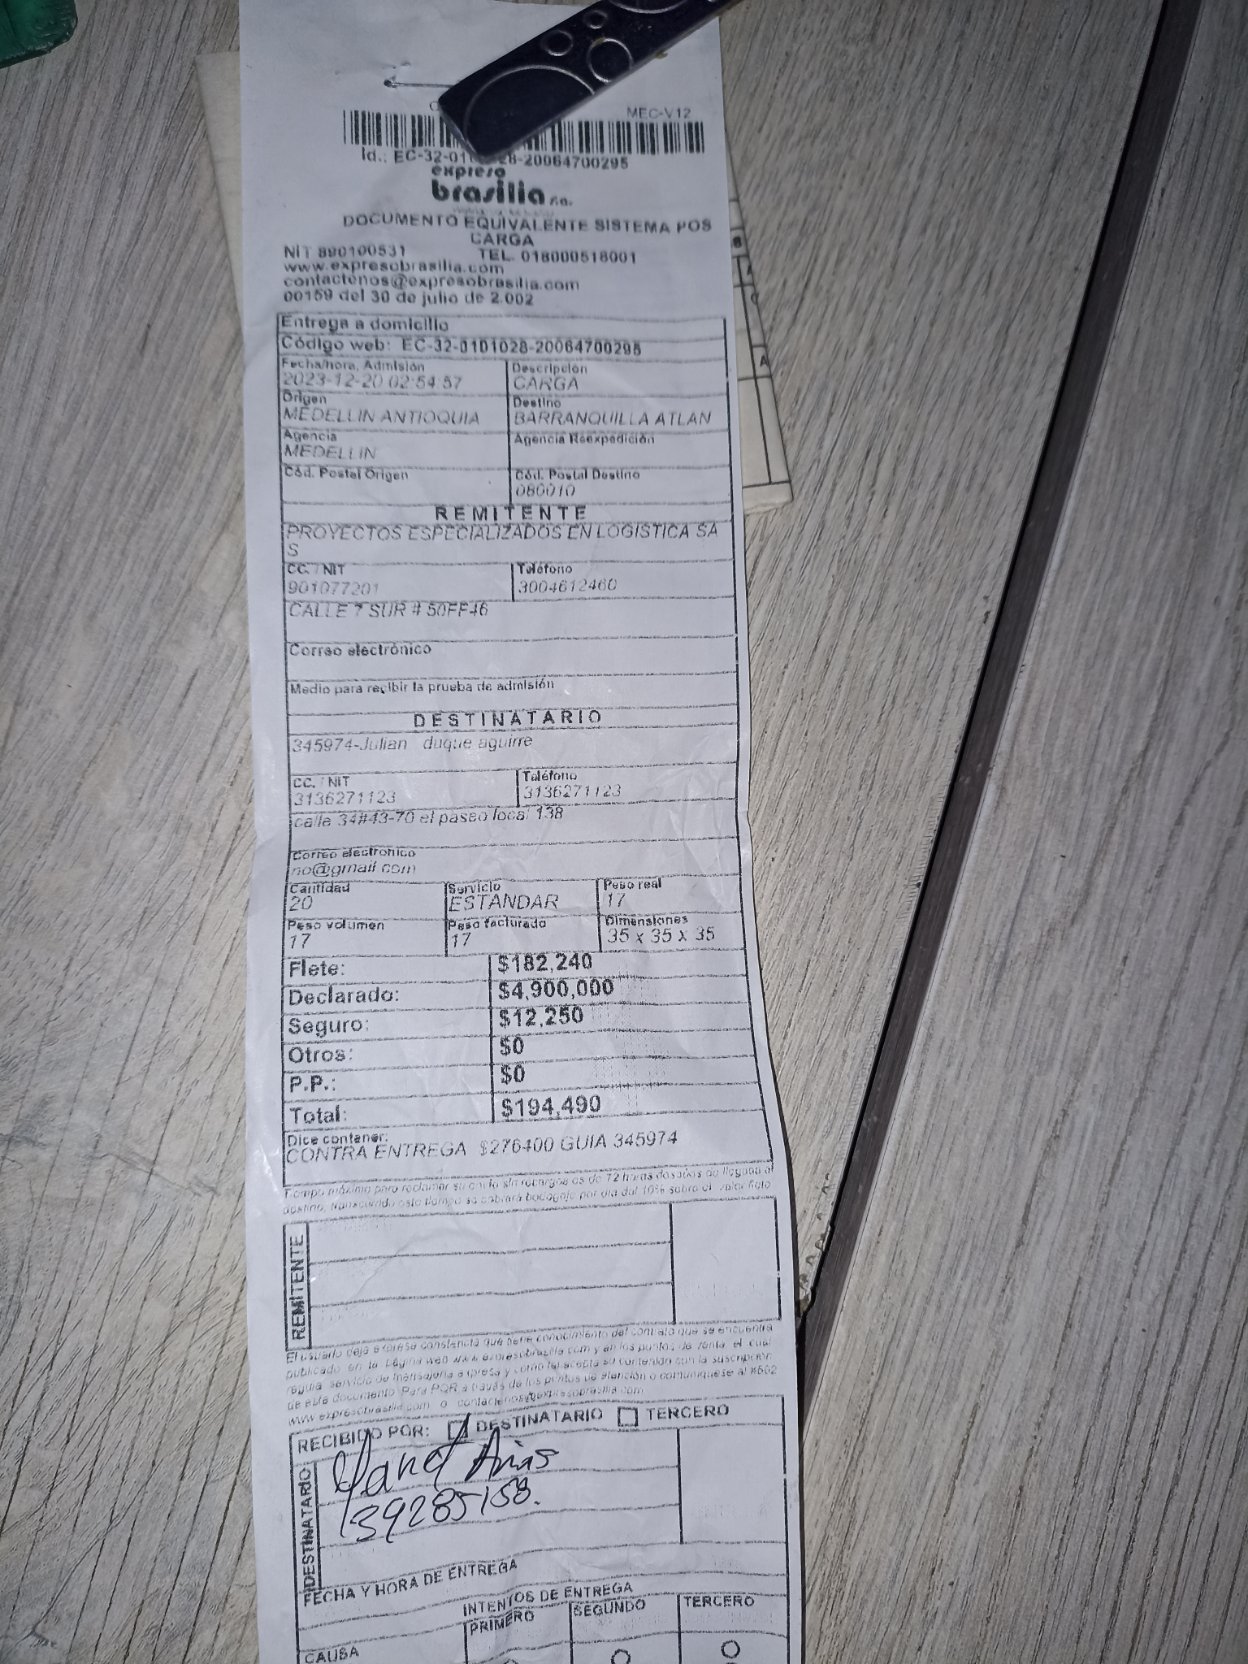 MEC-V12
Id.: EC-32-01 28-20064700295
expreso
brasilia s.a.
DOCUMENTO EQUIVALENTE SISTEMA POS
CARGA
NIT 890100531 TEL. 018000518001
www.expresobrasilia.com
contactenos@expresobrasilia.com
00159 del 30 de julio de 2.002
Entrega a domicilio
Código web: EC-32-0101028-20064700295
Fecha/hora. Admisión Descripción
2023-12-20 02:54:57 CARGA
Origen Destino
MEDELLIN ANTIOQUIA BARRANQUILLA ATLAN
Agencia Agencia Reexpedición
MEDELLIN
Cód. Postal Origen Cód. Postal Destino
080010
REMITENTE
PROYECTOS ESPECIALIZADOS EN LOGISTICA SA
S
CC. / NIT Teléfono
901077201 3004612460
CALLE 7 SUR # 50FF46
Correo electrónico
Medio para recibir la prueba de admisión
DESTINATARIO
345974-Julian duque aguirre
CC. / NIT Teléfono
3136271123 3136271123
calle 34#43-70 el paseo local 138
Correo electronico
no@gmail com
Cantidad Servicio Peso real
20 ESTANDAR 17
Peso volumen Peso facturado Dimensiones
17 17 35 x 35 x 35
Flete: $182,240
Declarado: $4,900,000
Seguro: $12,250
Otros: $0
P.P.: $0
Total: $194,490
Dice contener:
CONTRA ENTREGA $276400 GUIA 345974
Tiempo máximo para reclamar su sin recargos es de 72 horas
destino, transcurrido este tiempo se cobrará bodegaje por día del 10% sobre el valor flete
REMITENTE
El usuario deja expresa constancia que tiene conocimiento del contrato que se encuentra
publicado en la página web www.expresobrasilia.com y en los puntos de venta, el cual
regula servicio de mensajería expresa y como tal acepta su contenido con la suscripción
de este documento. Para PQR a través de los puntos de atención o comuníquese al #502
www.expresobrasilia.com o contactenos@expresobrasilia.com
RECIBIDO POR: DESTINATARIO TERCERO
DESTINATARIO
Yanet Arias
139285158.
FECHA Y HORA DE ENTREGA
INTENTOS DE ENTREGA
PRIMERO SEGUNDO TERCERO
CAUSA